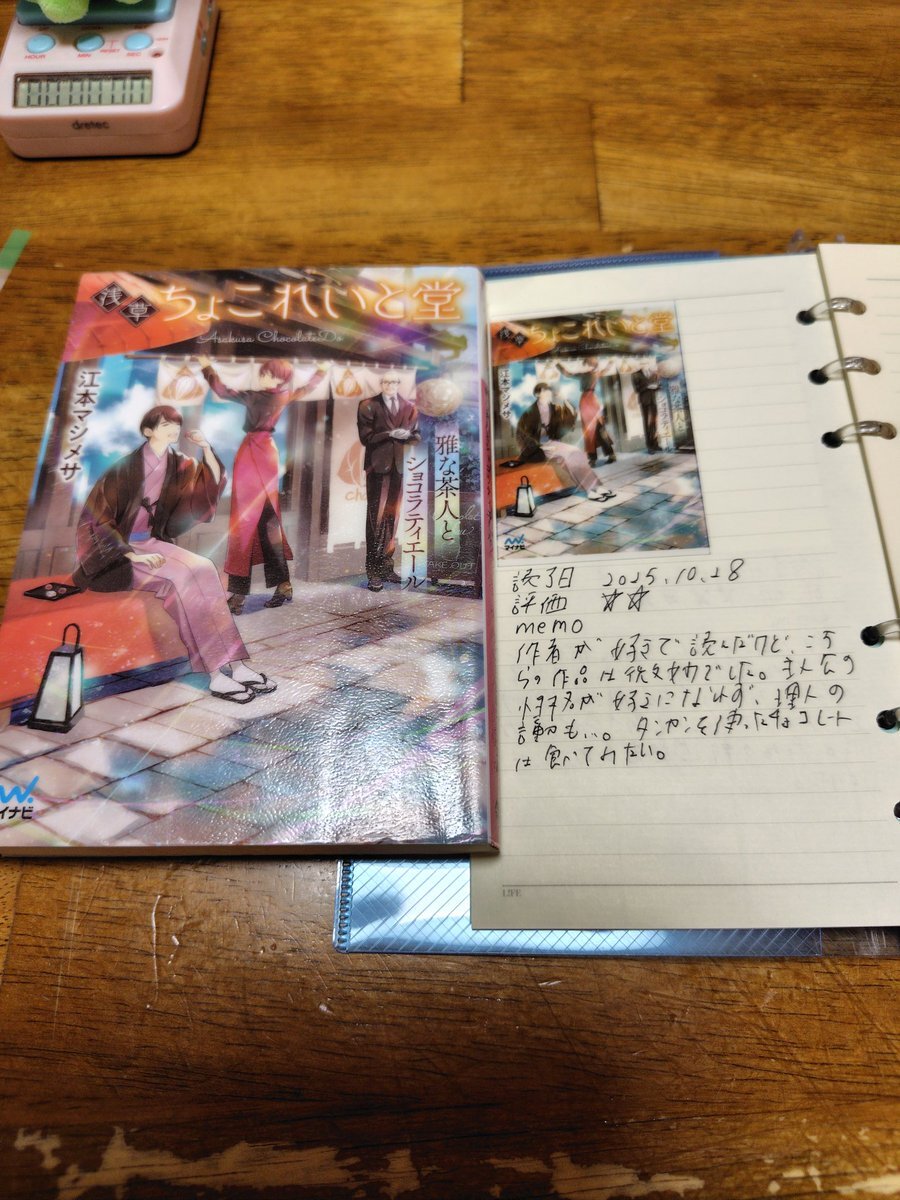 HOUR MIN RESET SEC
dretec
浅草 ちょこれいと堂
Asakusa Chocolate Do
江本マシメサ
雅な茶人と
ショコラティエール
TAKE OUT
イナビ
浅草 ちょこれいと堂
江本マシメサ
雅な茶人と
ショコラティエール
マイナビ
読了日 2025.10.28
評価 ☆☆
memo
作者が好きで読んだけど、こち
らの作品は微妙でした。主人公の
性格が好きになれず、理人の
言動も…。タンカンを使ったチョコレート
は食べてみたい。
LIFE